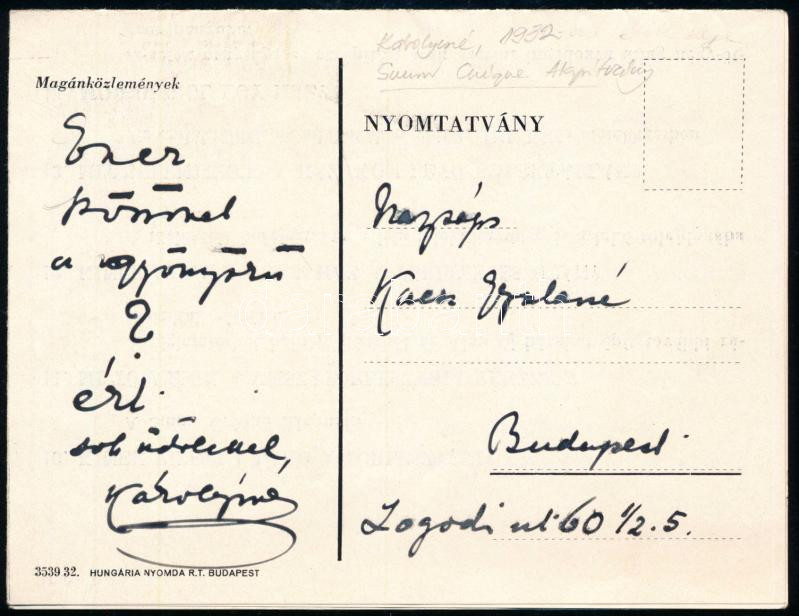 Károlyiné, 1932
Suum Cuique
Magánközlemények
NYOMTATVÁNY
Ezer
köszönet
a gyönyörű
?
ért
sok üdvlettel,
Károlyiné
Nagységs
Kaesz Gyuláné
Budapest
Logodi ut 60 1/2. 5.
3539 32. HUNGÁRIA NYOMDA R.T. BUDAPEST